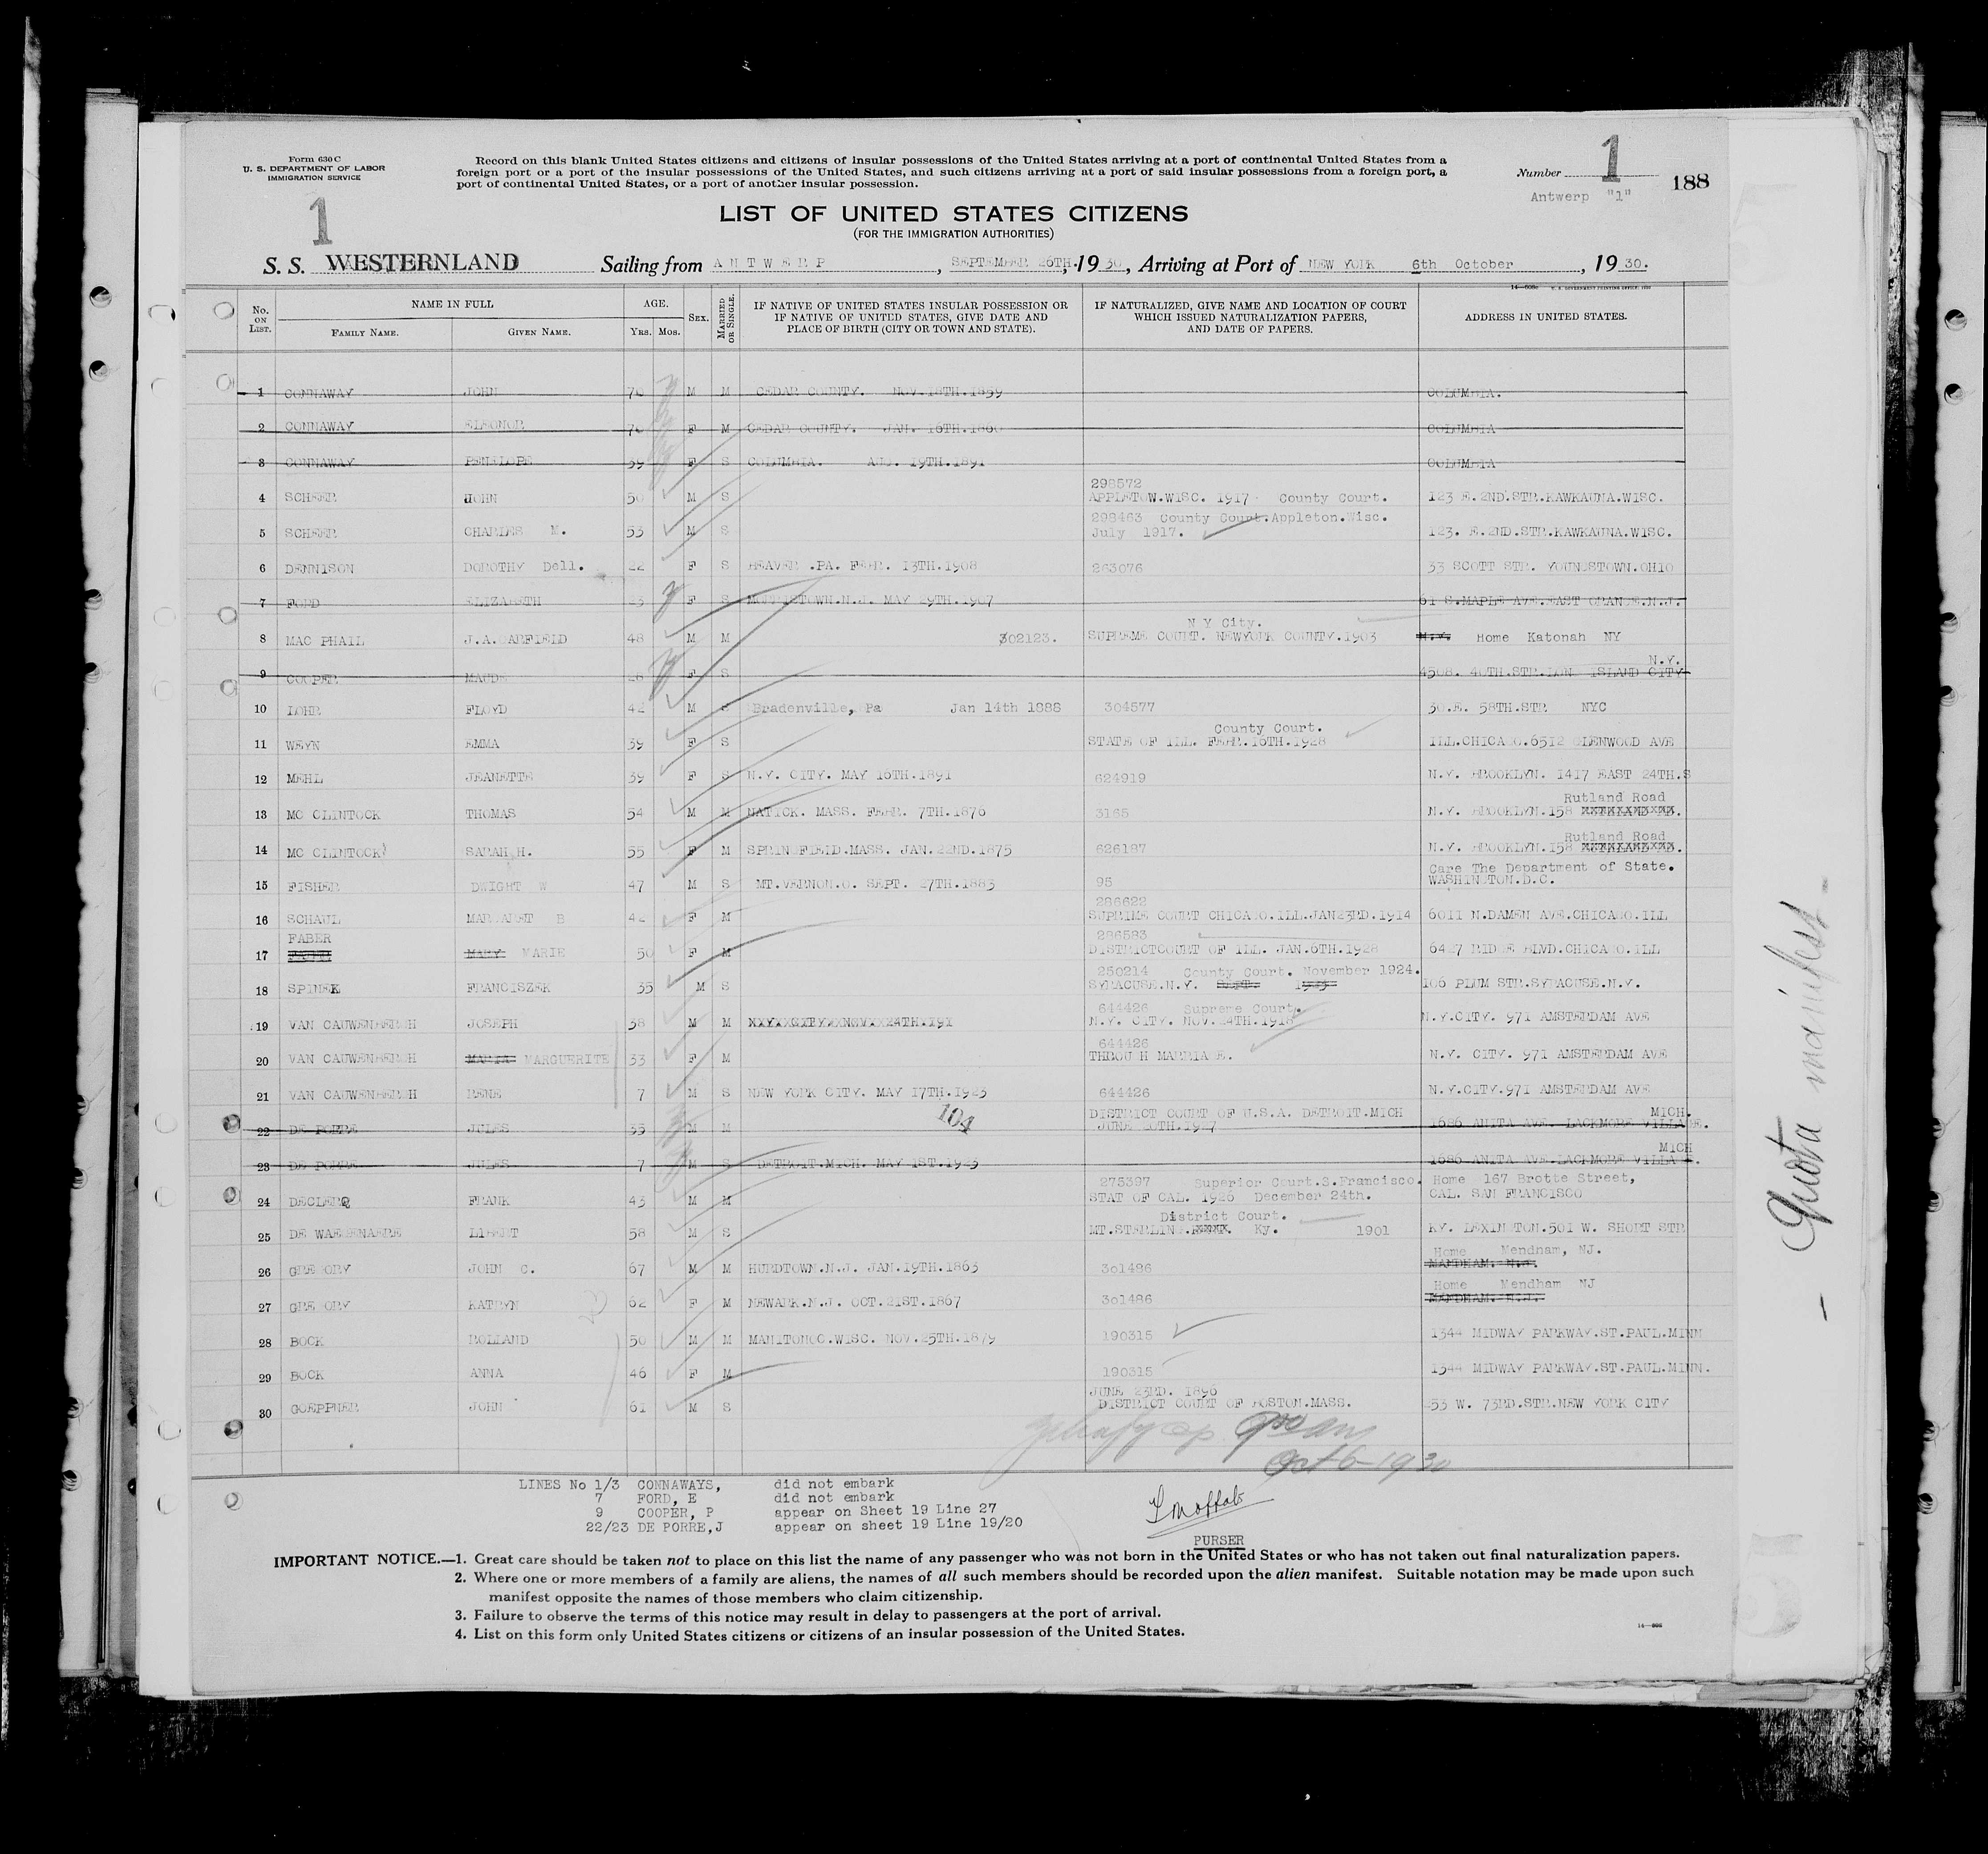 Form 630 C
U. S. DEPARTMENT OF LABOR
IMMIGRATION SERVICE
Record on this blank United States citizens and citizens of insular possessions of the United States arriving at a port of continental United States from a
foreign port or a port of the insular possessions of the United States, and such citizens arriving at a port of said insular possessions from a foreign port, a
port of continental United States, or a port of another insular possession.
Number 1 188
Antwerp "1"
1
LIST OF UNITED STATES CITIZENS
(FOR THE IMMIGRATION AUTHORITIES)
S. S. WESTERNLAND Sailing from ANTWERP, SEPTEMBER 26TH. 1930, Arriving at Port of NEW YORK 6th October, 1930.
No. ON LIST. NAME IN FULL FAMILY NAME. GIVEN NAME. AGE. YRS. MOS. SEX. MARRIED OR SINGLE. IF NATIVE OF UNITED STATES INSULAR POSSESSION OR IF NATIVE OF UNITED STATES, GIVE DATE AND PLACE OF BIRTH (CITY OR TOWN AND STATE). IF NATURALIZED, GIVE NAME AND LOCATION OF COURT WHICH ISSUED NATURALIZATION PAPERS, AND DATE OF PAPERS. ADDRESS IN UNITED STATES.
1 CONNAWAY JOHN 70 M M CEDAR COUNTY. NOV. 18TH.1859 COLUMBIA.
2 CONNAWAY ELEONOR 70 F M CEDAR COUNTY. JAN. 16TH.1860 COLUMBIA
3 CONNAWAY PENELOPE 39 F S COLUMBIA. AUG. 19TH.1891 COLUMBIA
298572
4 SCHEER JOHN 50 M S APPLETOW.WISC. 1917 County Court. 123 E.2ND.STR.KAWKAUNA.WISC.
298463 County Court.Appleton.Wisc.
5 SCHEER CHARLES M. 53 M S July 1917. 123. E.2ND.STR.KAWKAUNA.WISC.
6 DENNISON DOROTHY Dell. 22 F S BEAVER .PA. FEBR. 13TH.1908 263076 33 SCOTT STR. YOUNGSTOWN.OHIO
7 FORD ELIZABETH 23 F S MORRISTOWN.N.J. MAY 29TH.1907 61 S.MAPLE AVE.EAST ORANGE.N.J.
N Y City.
8 MAC PHAIL J.A.GARFIELD 48 M M 302123. SUPREME COURT. NEWYORK COUNTY.1903 N.Y. Home Katonah NY
N.Y.
9 COOPER MAUDE 26 F S 4508. 40TH.STR.LONG ISLAND CITY
10 LOHR FLOYD 42 M S Bradenville, Pa Jan 14th 1888 304577 30.E. 58TH.STR NYC
County Court.
11 WEYN EMMA 39 F S STATE OF ILL. FEBR.16TH.1928 ILL.CHICAGO.6512 GLENWOOD AVE
12 MEHL JEANETTE 39 F S N.Y. CITY. MAY 16TH.1891 624919 N.Y. BROOKLYN. 1417 EAST 24TH.S
Rutland Road
13 MC CLINTOCK THOMAS 54 M M NATICK. MASS. FEBR. 7TH.1876 3165 N.Y. BROOKLYN.158
Rutland Road
14 MC CLINTOCK SARAH H. 55 F M SPRINGFIELD.MASS. JAN.22ND.1875 626187 N.Y. BROOKLYN.158
Care The Department of State.
15 FISHER DWIGHT W 47 M S MT.VERNON.O. SEPT. 27TH.1883 95 WASHINGTON.D.C.
286622
16 SCHAUL MARGARET B 42 F M SUPRIME COURT CHICAGO.ILL.JAN23RD.1914 6011 N.DAMEN AVE.CHICAGO.ILL
FABER 286583
17 MARY MARIE 50 F M DISTRICTCOURT OF ILL. JAN.6TH.1928 6427 RIDGE BLVD.CHICAGO.ILL
250214 County Court. November 1924.
18 SPINEK FRANCISZEK 35 M S SYRACUSE.N.Y. 106 PLUM STR.SYRACUSE.N.Y.
644426 Supreme Court.
19 VAN CAUWENBERGH JOSEPH 38 M M N.Y. CITY. NOV.24TH.1918 N.Y.CITY. 971 AMSTERDAM AVE
644426
20 VAN CAUWENBERGH MARGUERITE 33 F M THROUGH MARRIAGE. N.Y. CITY. 971 AMSTERDAM AVE
21 VAN CAUWENBERGH RENE 7 M S NEW YORK CITY. MAY 17TH.1923 644426 N.Y.CITY.971 AMSTERDAM AVE
104 DISTRICT COURT OF U.S.A. DETROIT.MICH MICH.
22 DE PORRE JULES 35 M M JUNE 20TH.1927 1686 ANITA AVE. LACKMORE VILLAGE.
MICH
23 DE PORRE JULES 7 M S DETROIT.MICH. MAY 1ST.1923 1686 ANITA AVE.LACKMORE VILLAGE.
275397 Superior Court.S.Francisco. Home 167 Brotte Street,
24 DECLERQ FRANK 43 M M STAT OF CAL. 1926 December 24th. CAL. SAN FRANCISCO
District Court.
25 DE WAEGENAERE LIBERT 58 M S MT.STERLING. Ky. 1901 KY. LEXINGTON.501 W. SHORT STR
Home Mendham, NJ.
26 GREGORY JOHN C. 67 M M HURDTOWN.N.J. JAN.19TH.1863 301486 MANDHAM. N.J.
Home Mendham NJ
27 GREGORY KATRYN 62 F M NEWARK.N.J. OCT.21ST.1867 301486 MANDHAM. N.J.
28 BOCK ROLLAND 50 M M MANITONOC.WISC. NOV.25TH.1879 190315 1344 MIDWAY PARKWAY.ST.PAUL.MINN
29 BOCK ANNA 46 F M 190315 1344 MIDWAY PARKWAY.ST.PAUL.MINN.
JUNE 23RD. 1896
30 GOEPPNER JOHN 61 M S DISTRICT COURT OF BOSTON.MASS. 53 W. 73RD.STR.NEW YORK CITY
Oct 6-1930
LINES No 1/3 CONNAWAYS, did not embark
7 FORD, E did not embark
9 COOPER, P appear on Sheet 19 Line 27
22/23 DE PORRE,J appear on sheet 19 Line 19/20
PURSER
IMPORTANT NOTICE.—1. Great care should be taken not to place on this list the name of any passenger who was not born in the United States or who has not taken out final naturalization papers.
2. Where one or more members of a family are aliens, the names of all such members should be recorded upon the alien manifest. Suitable notation may be made upon such
manifest opposite the names of those members who claim citizenship.
3. Failure to observe the terms of this notice may result in delay to passengers at the port of arrival.
4. List on this form only United States citizens or citizens of an insular possession of the United States.
- Quota manifest -